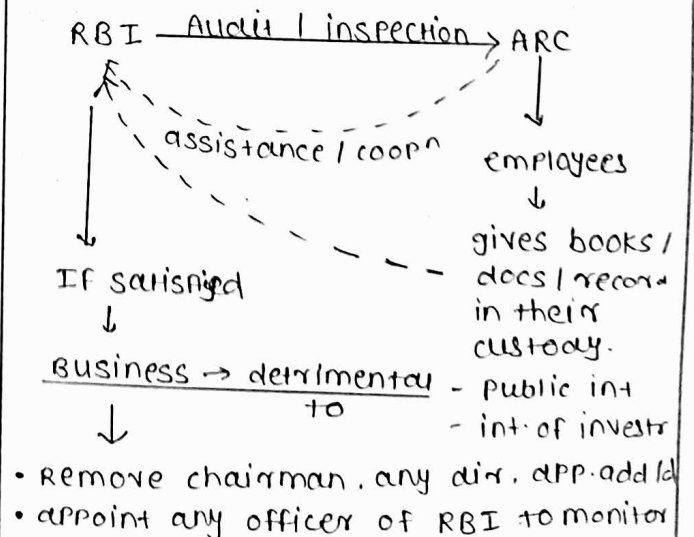 RBI Audit / inspection ARC
assistance / coopⁿ
employees
gives books /
docs / record
in their
custody.
If satisfied
Business → detrimental
to
- public int
- int. of investr
• Remove chairman, any dir, app. add
• appoint any officer of RBI to monitor